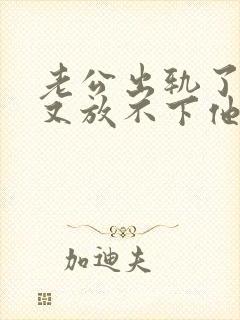 老公出轨了
又放不下他
加迪夫